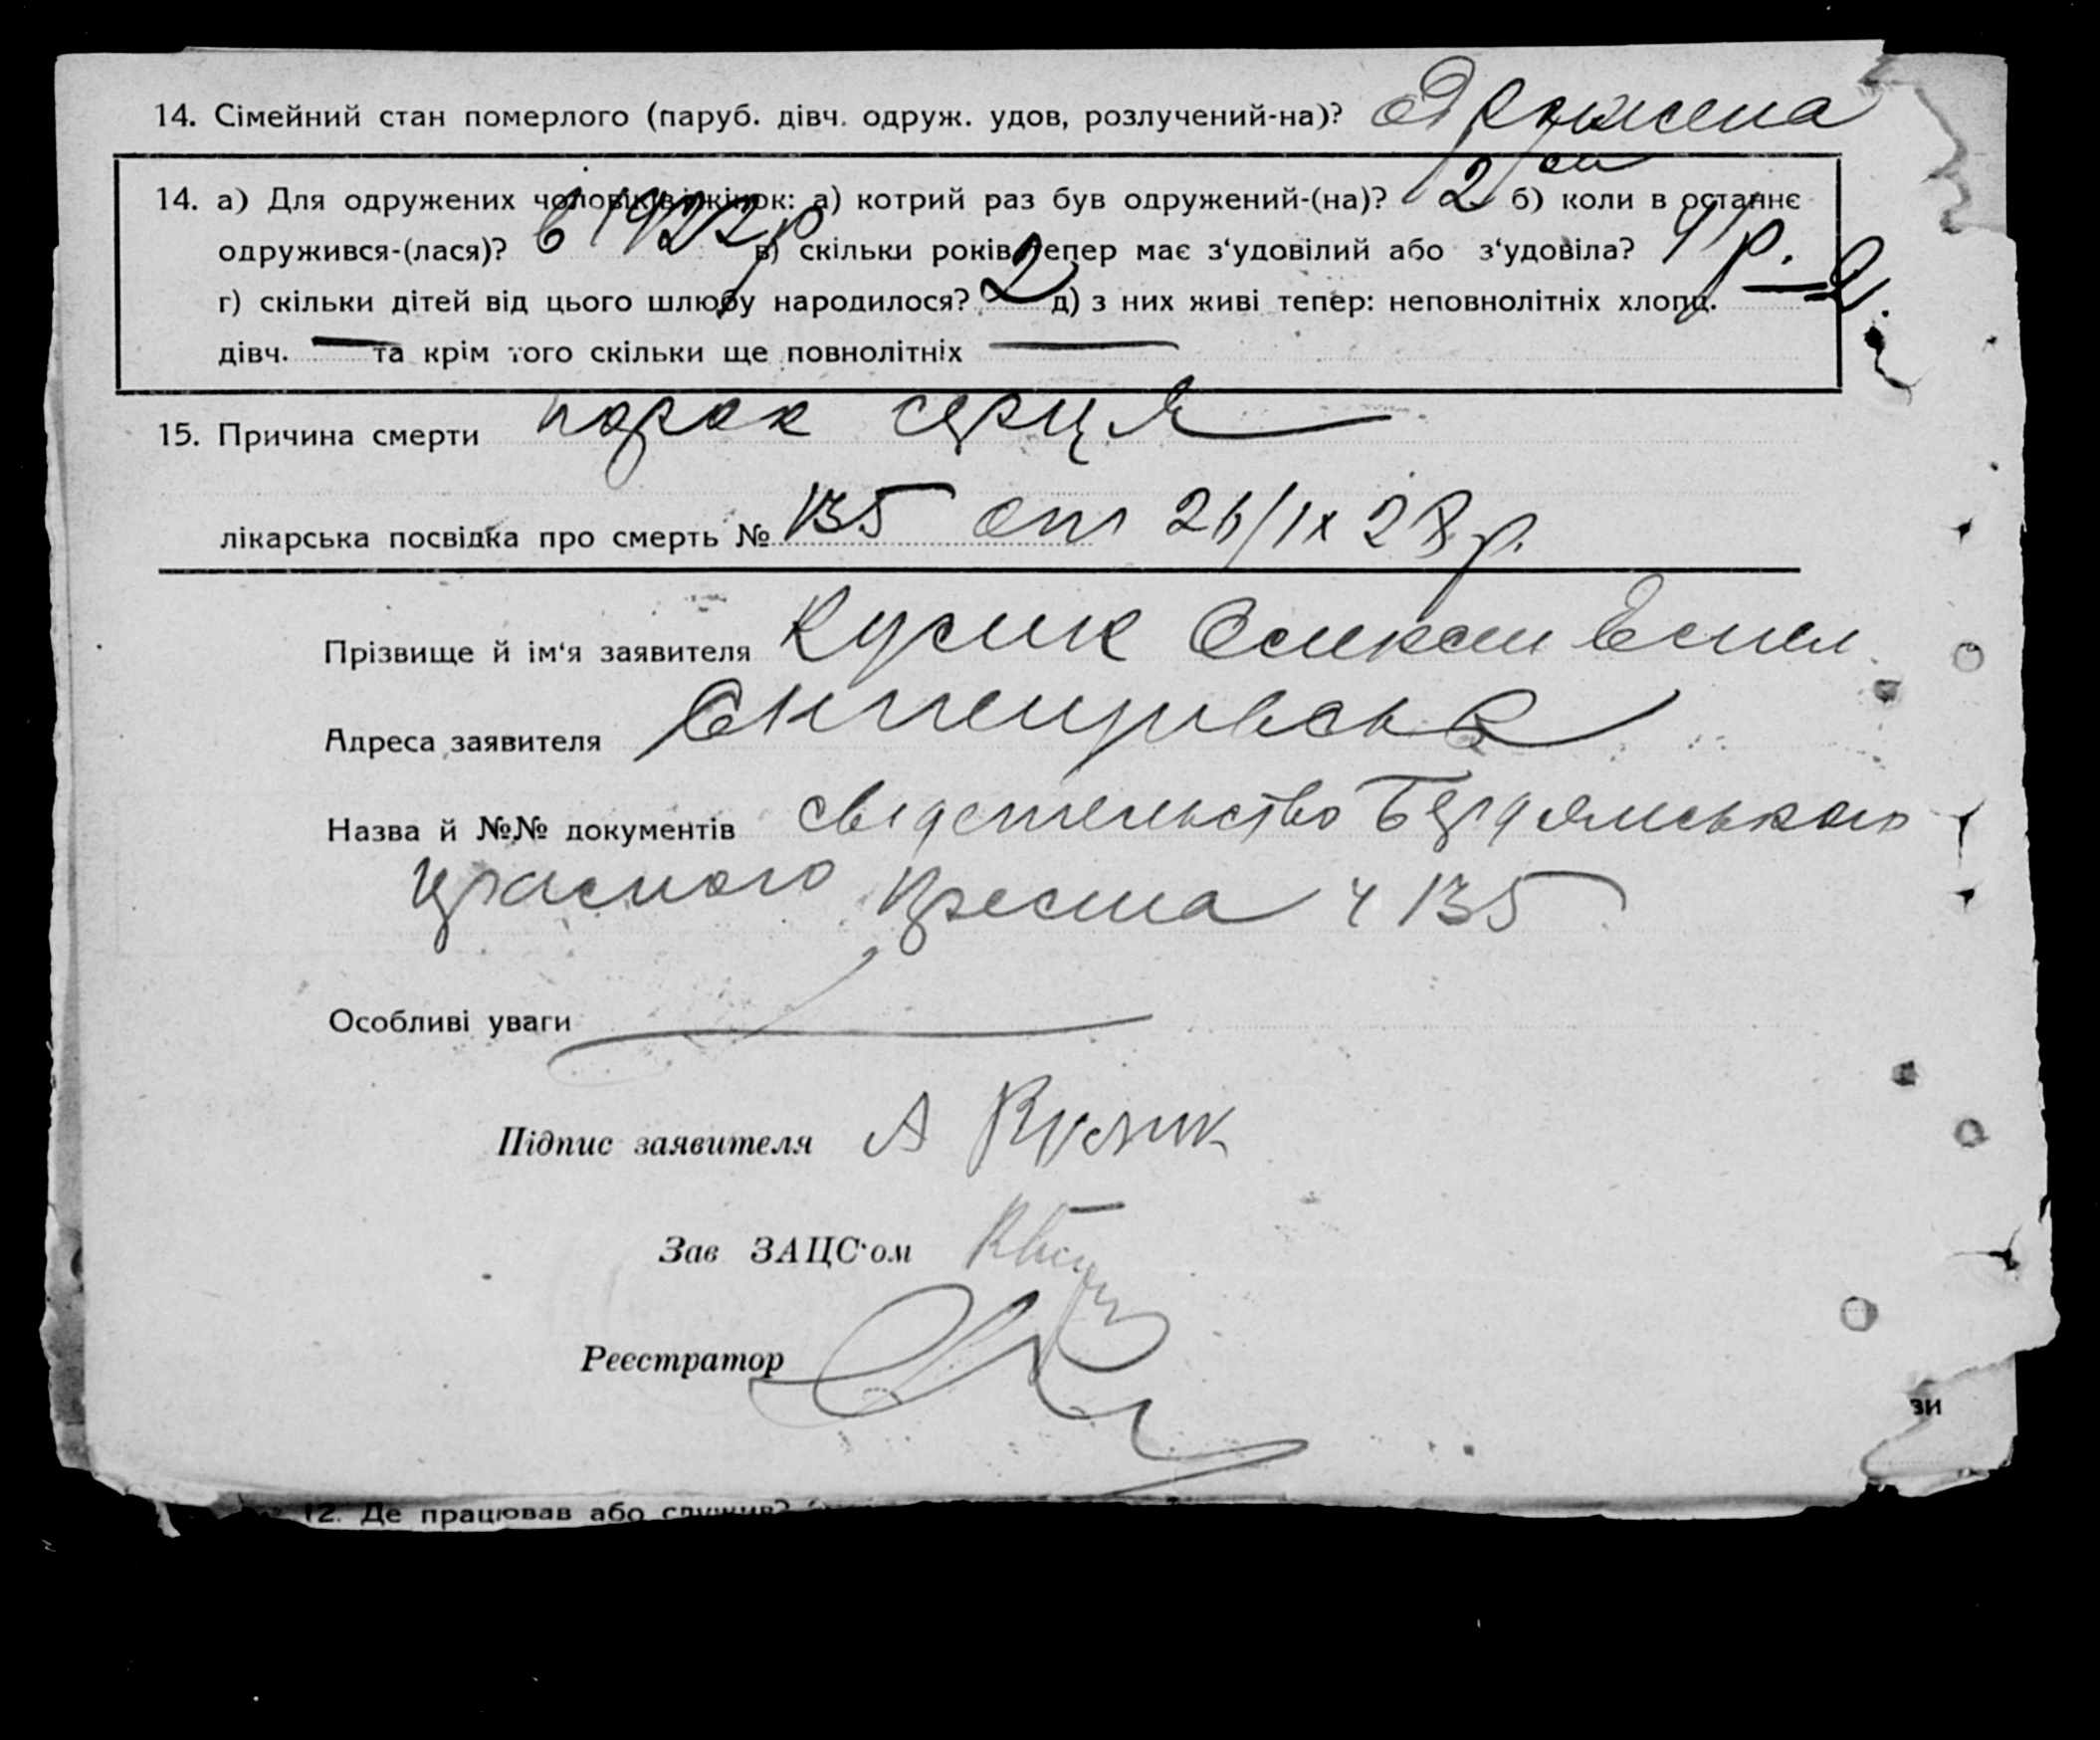 14. Сімейний стан померлого (паруб. дівч. одруж. удов, розлучений-на)? одружена
14. а) Для одружених чоловіків і жінок: а) котрий раз був одружений-(на)? 2 ой б) коли в останнє
одружився-(лася)? в 1922 р в) скільки років тепер має з'удовілий або з'удовіла? 41 р.
г) скільки дітей від цього шлюбу народилося? 2 д) з них живі тепер: неповнолітніх хлопц. —
дівч. — та крім того скільки ще повнолітніх —
15. Причина смерти порок серця
лікарська посвідка про смерть № 135 от 26/IX 28 р.
Прізвище й ім'я заявителя Кулик
Адреса заявителя
Назва й №№ документів свідетельство Бердянського
красного креста ч 135
Особливі уваги —
Підпис заявителя А Кулик
Зав ЗАЦС'ом
Реєстратор
зи
12. Де працював або служив?